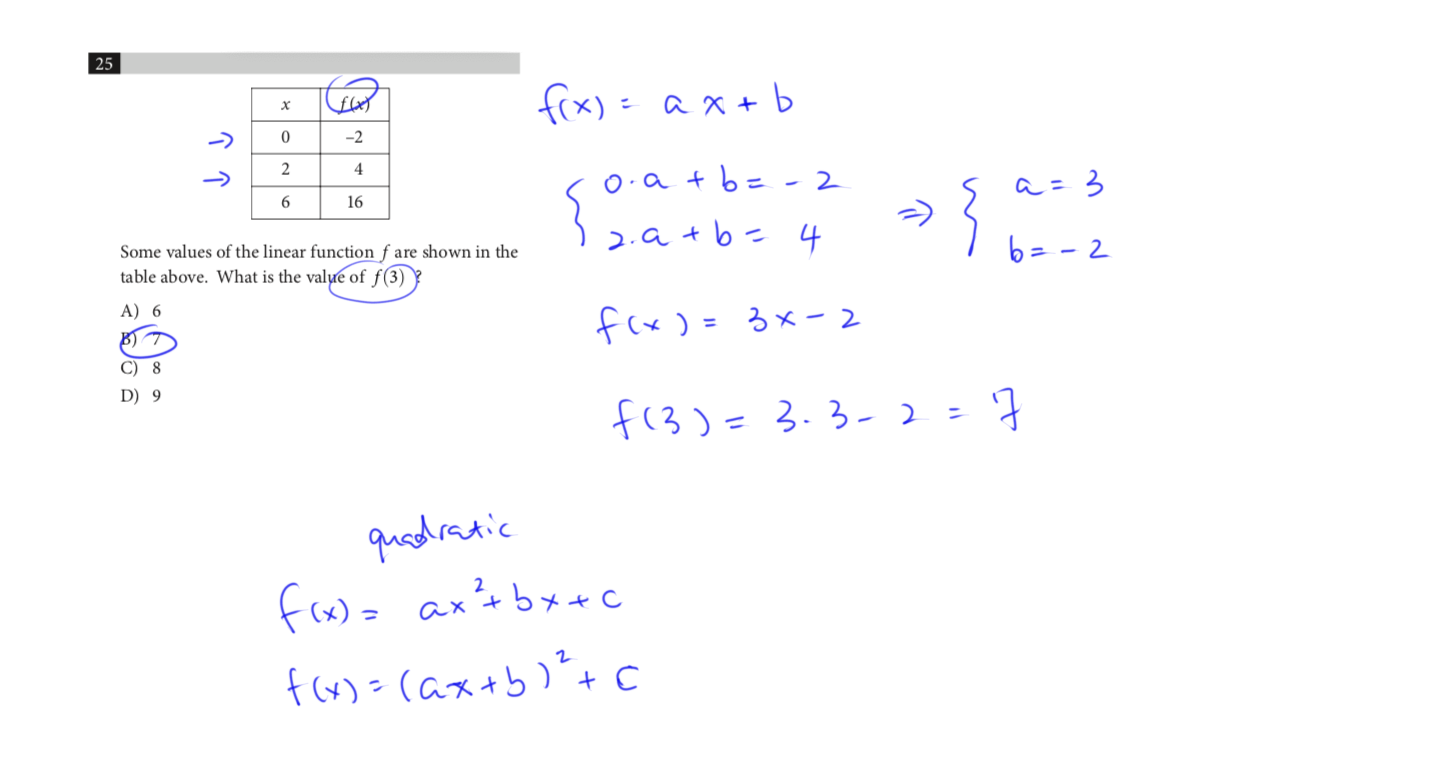 25
x f(x)
0 –2
2 4
6 16
Some values of the linear function f are shown in the
table above. What is the value of f(3) ?
A) 6
B) 7
C) 8
D) 9
f(x) = ax + b
{ 0·a + b = -2
2·a + b = 4
⇒ { a = 3
b = -2
f(x) = 3x - 2
f(3) = 3·3 - 2 = 7
quadratic
f(x) = ax² + bx + c
f(x) = (ax+b)² + c